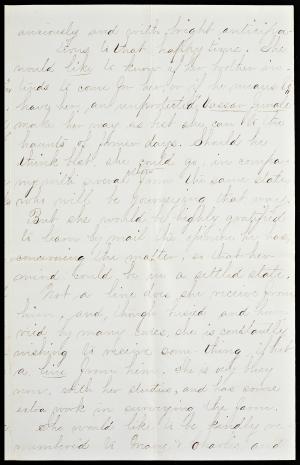 anxiously and with bright anticipa-
tions to that happy time. She
would like to know if her brother in-
tends to come for her, or if he means to
have her, an unprotected Vassar female
make her way as best she can to the
haunts of former days. Should he
think best, she could go, in compa-
ny with several others from the same state
who will be journeying that way.
But she would be highly gratified
to learn by mail the opinion he has
concerning the matter, so that her
mind could be in a settled state.
Not a line does she receive from
him, and, though hurried and wor-
ried by many cares, she is constantly
wishing to receive some-thing, if but
a line from him. She is very busy
now, with her studies, and has some
extra work in surveying the farm.
She would like to be kindly re-
membered to Mary & Charlie, and